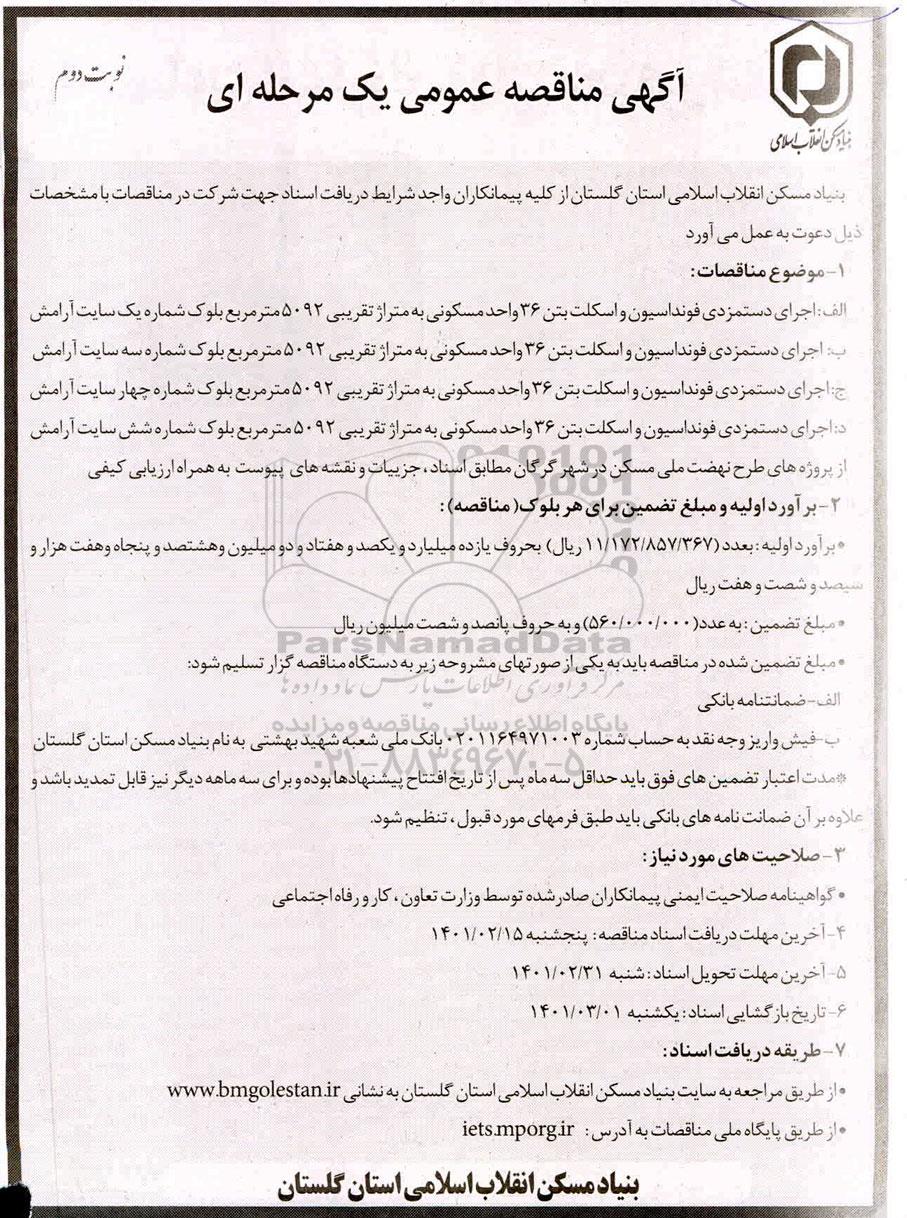 بنیاد مسکن انقلاب اسلامی
نوبت دوم
آگهی مناقصه عمومی یک مرحله ای
بنیاد مسکن انقلاب اسلامی استان گلستان از کلیه پیمانکاران واجد شرایط دریافت اسناد جهت شرکت در مناقصات با مشخصات
ذیل دعوت به عمل می آورد
۱-موضوع مناقصات:
الف: اجرای دستمزدی فونداسیون و اسکلت بتن ۳۶ واحد مسکونی به متراژ تقریبی ۵۰۹۲ مترمربع بلوک شماره یک سایت آرامش
ب: اجرای دستمزدی فونداسیون و اسکلت بتن ۳۶ واحد مسکونی به متراژ تقریبی ۵۰۹۲ مترمربع بلوک شماره سه سایت آرامش
ج: اجرای دستمزدی فونداسیون و اسکلت بتن ۳۶ واحد مسکونی به متراژ تقریبی ۵۰۹۲ مترمربع بلوک شماره چهار سایت آرامش
د: اجرای دستمزدی فونداسیون و اسکلت بتن ۳۶ واحد مسکونی به متراژ تقریبی ۵۰۹۲ مترمربع بلوک شماره شش سایت آرامش
از پروژه های طرح نهضت ملی مسکن در شهر گرگان مطابق اسناد، جزییات و نقشه های پیوست به همراه ارزیابی کیفی
۲-برآورد اولیه و مبلغ تضمین برای هر بلوک( مناقصه):
•برآورد اولیه: بعدد (۱۱/۱۷۲/۸۵۷/۳۶۷ ریال) بحروف یازده میلیارد و یکصد و هفتاد و دو میلیون وهشتصد و پنجاه وهفت هزار و
سیصد و شصت و هفت ریال
•مبلغ تضمین: به عدد(۵۶۰/۰۰۰/۰۰۰) و به حروف پانصد و شصت میلیون ریال
ParsNamadData
•مبلغ تضمین شده در مناقصه باید به یکی از صورتهای مشروحه زیر به دستگاه مناقصه گزار تسلیم شود:
مرکز فرآوری اطلاعات پارس نماد داده ها
الف-ضمانتنامه بانکی
پایگاه اطلاع رسانی مناقصه و مزایده
ب-فیش واریز وجه نقد به حساب شماره ۰۲۰۱۱۶۴۹۷۱۰۰۳ بانک ملی شعبه شهید بهشتی به نام بنیاد مسکن استان گلستان
۰۲۱-۸۸۳۴۹۶۷۰-۵
*مدت اعتبار تضمین های فوق باید حداقل سه ماه پس از تاریخ افتتاح پیشنهادها بوده و برای سه ماهه دیگر نیز قابل تمدید باشد و
علاوه بر آن ضمانت نامه های بانکی باید طبق فرمهای مورد قبول، تنظیم شود.
۳-صلاحیت های مورد نیاز:
•گواهینامه صلاحیت ایمنی پیمانکاران صادرشده توسط وزارت تعاون، کار و رفاه اجتماعی
۴-آخرین مهلت دریافت اسناد مناقصه: پنجشنبه ۱۴۰۱/۰۲/۱۵
۵-آخرین مهلت تحویل اسناد: شنبه ۱۴۰۱/۰۲/۳۱
۶-تاریخ بازگشایی اسناد: یکشنبه ۱۴۰۱/۰۳/۰۱
۷-طریقه دریافت اسناد:
•از طریق مراجعه به سایت بنیاد مسکن انقلاب اسلامی استان گلستان به نشانی www.bmgolestan.ir
•از طریق پایگاه ملی مناقصات به آدرس: iets.mporg.ir
بنیاد مسکن انقلاب اسلامی استان گلستان